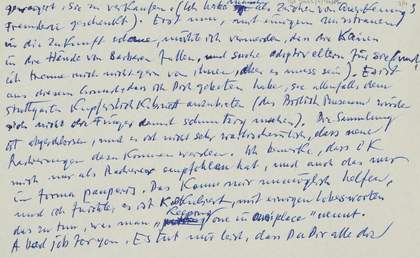 geweigert, sie zu verkaufen (Ich habe manche Zeiten von Auswerbung 3
Fremden geschenkt). Erst nun, mit einigem Misstrauen
in die Zukunft sehend, möchte ich vermeiden, dass die Kleinen
in die Hände von Barbaren fallen, und suche adoptiveltern für sie (und
ich trenne mich nicht gern von ihnen, aber es muss sein). Es ist
aus diesem Grunde, dass ich Dich gebeten habe, sie allenfalls dem
Stuttgarter Kupferstich Kabinett anzubieten (das British Museum würde
sich nicht die Finger damit schmutzig machen). Die Sammlung
ist abgeschlossen, und es ist nicht sehr wahrscheinlich, dass neue
Radierungen dazu kommen werden. Ich bemerke, dass OK
mich nur als Radierer empfohlen hat, und auch das nur
in forma pauperis. Das kann mir unmöglich helfen,
und ich fürchte, es ist kalkuliert, mit einigen Lobesworten
das zu tun, was man "keeping one in one's place" nennt.
A bad job for you. Es tut mir leid, dass Du Dir alle die